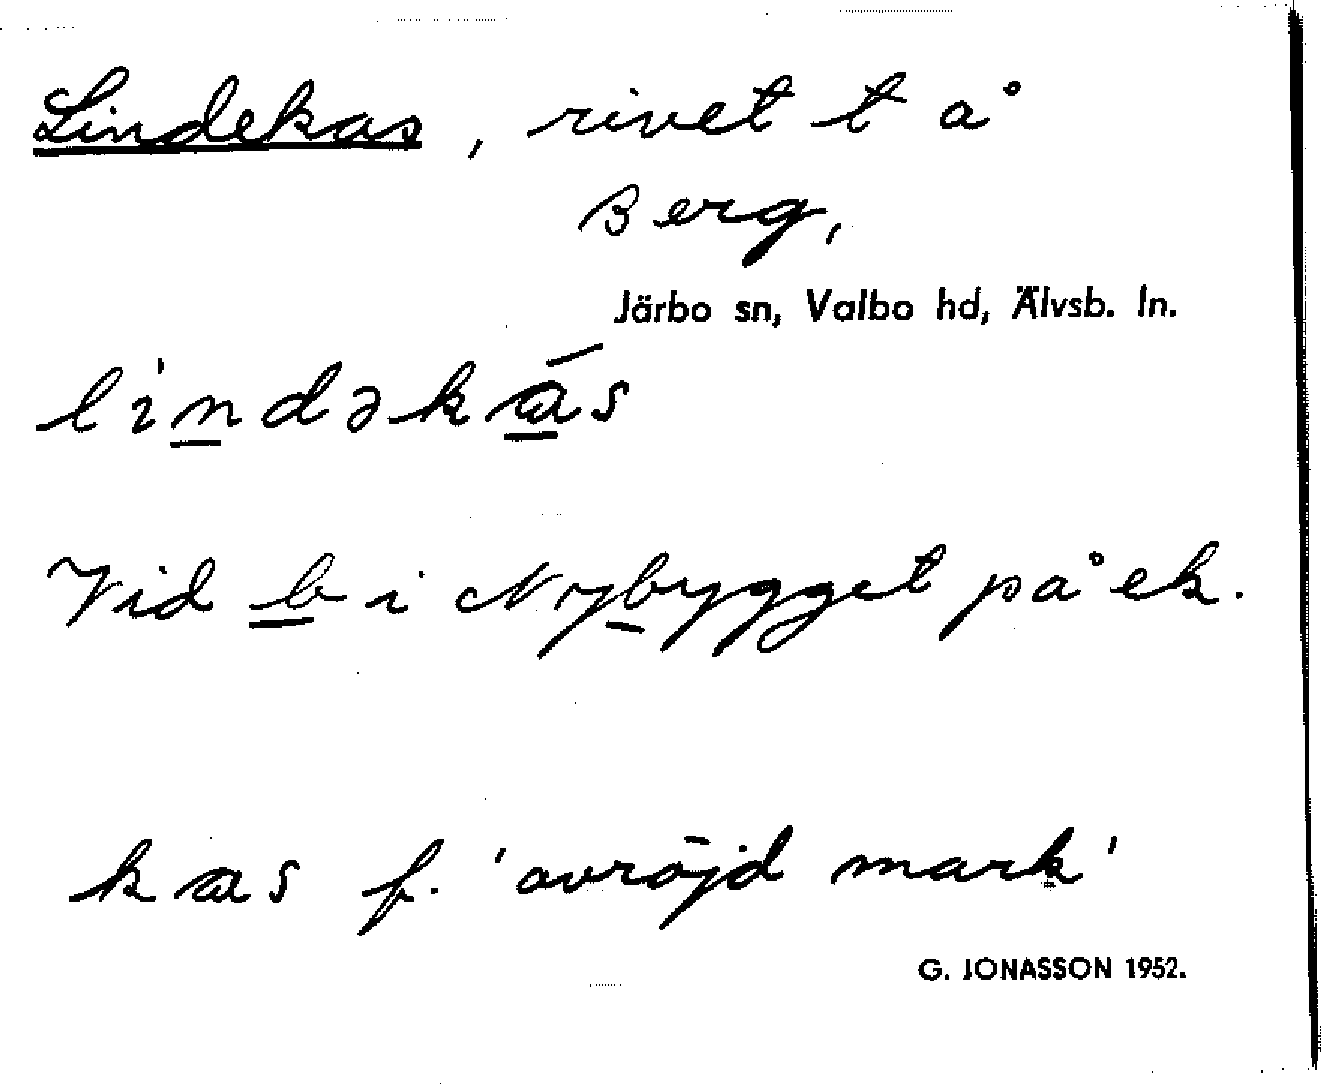 Lindekas, rivet t å
Berg,
Järbo sn, Valbo hd, Älvsb. ln.
lindəkás
Vid b i Nybygget på ek.
kas f. 'avröjd mark'
G. JONASSON 1952.